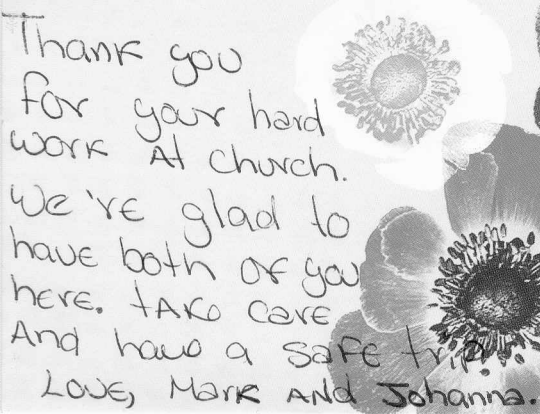 Thank you
for your hard
work At church.
We've glad to
have both of you
here. take care
And have a safe trip.
Love, Mark and Johanna.